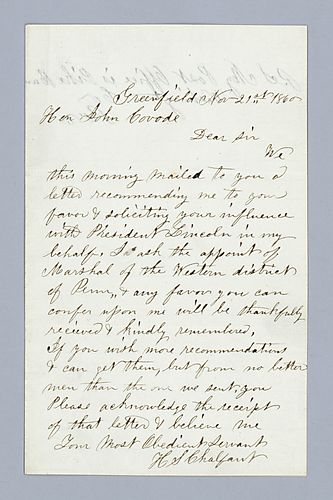 Greenfield Nov 21st 1860
Hon John Covode
Dear Sir
We
this morning mailed to you a
letter recommending me to your
favor & soliciting your influence
with President Lincoln in my
behalf. I ask the appoint of
Marshal of the Western district
of Penn, & any favor you can
confer upon me will be thankfully
received & kindly remembered,
If you wish more recommendations
I can get them, but from no better
men than the one we sent you
Please acknowledge the receipt
of that letter & believe me
Your Most Obedient Servant
H S Chalfant